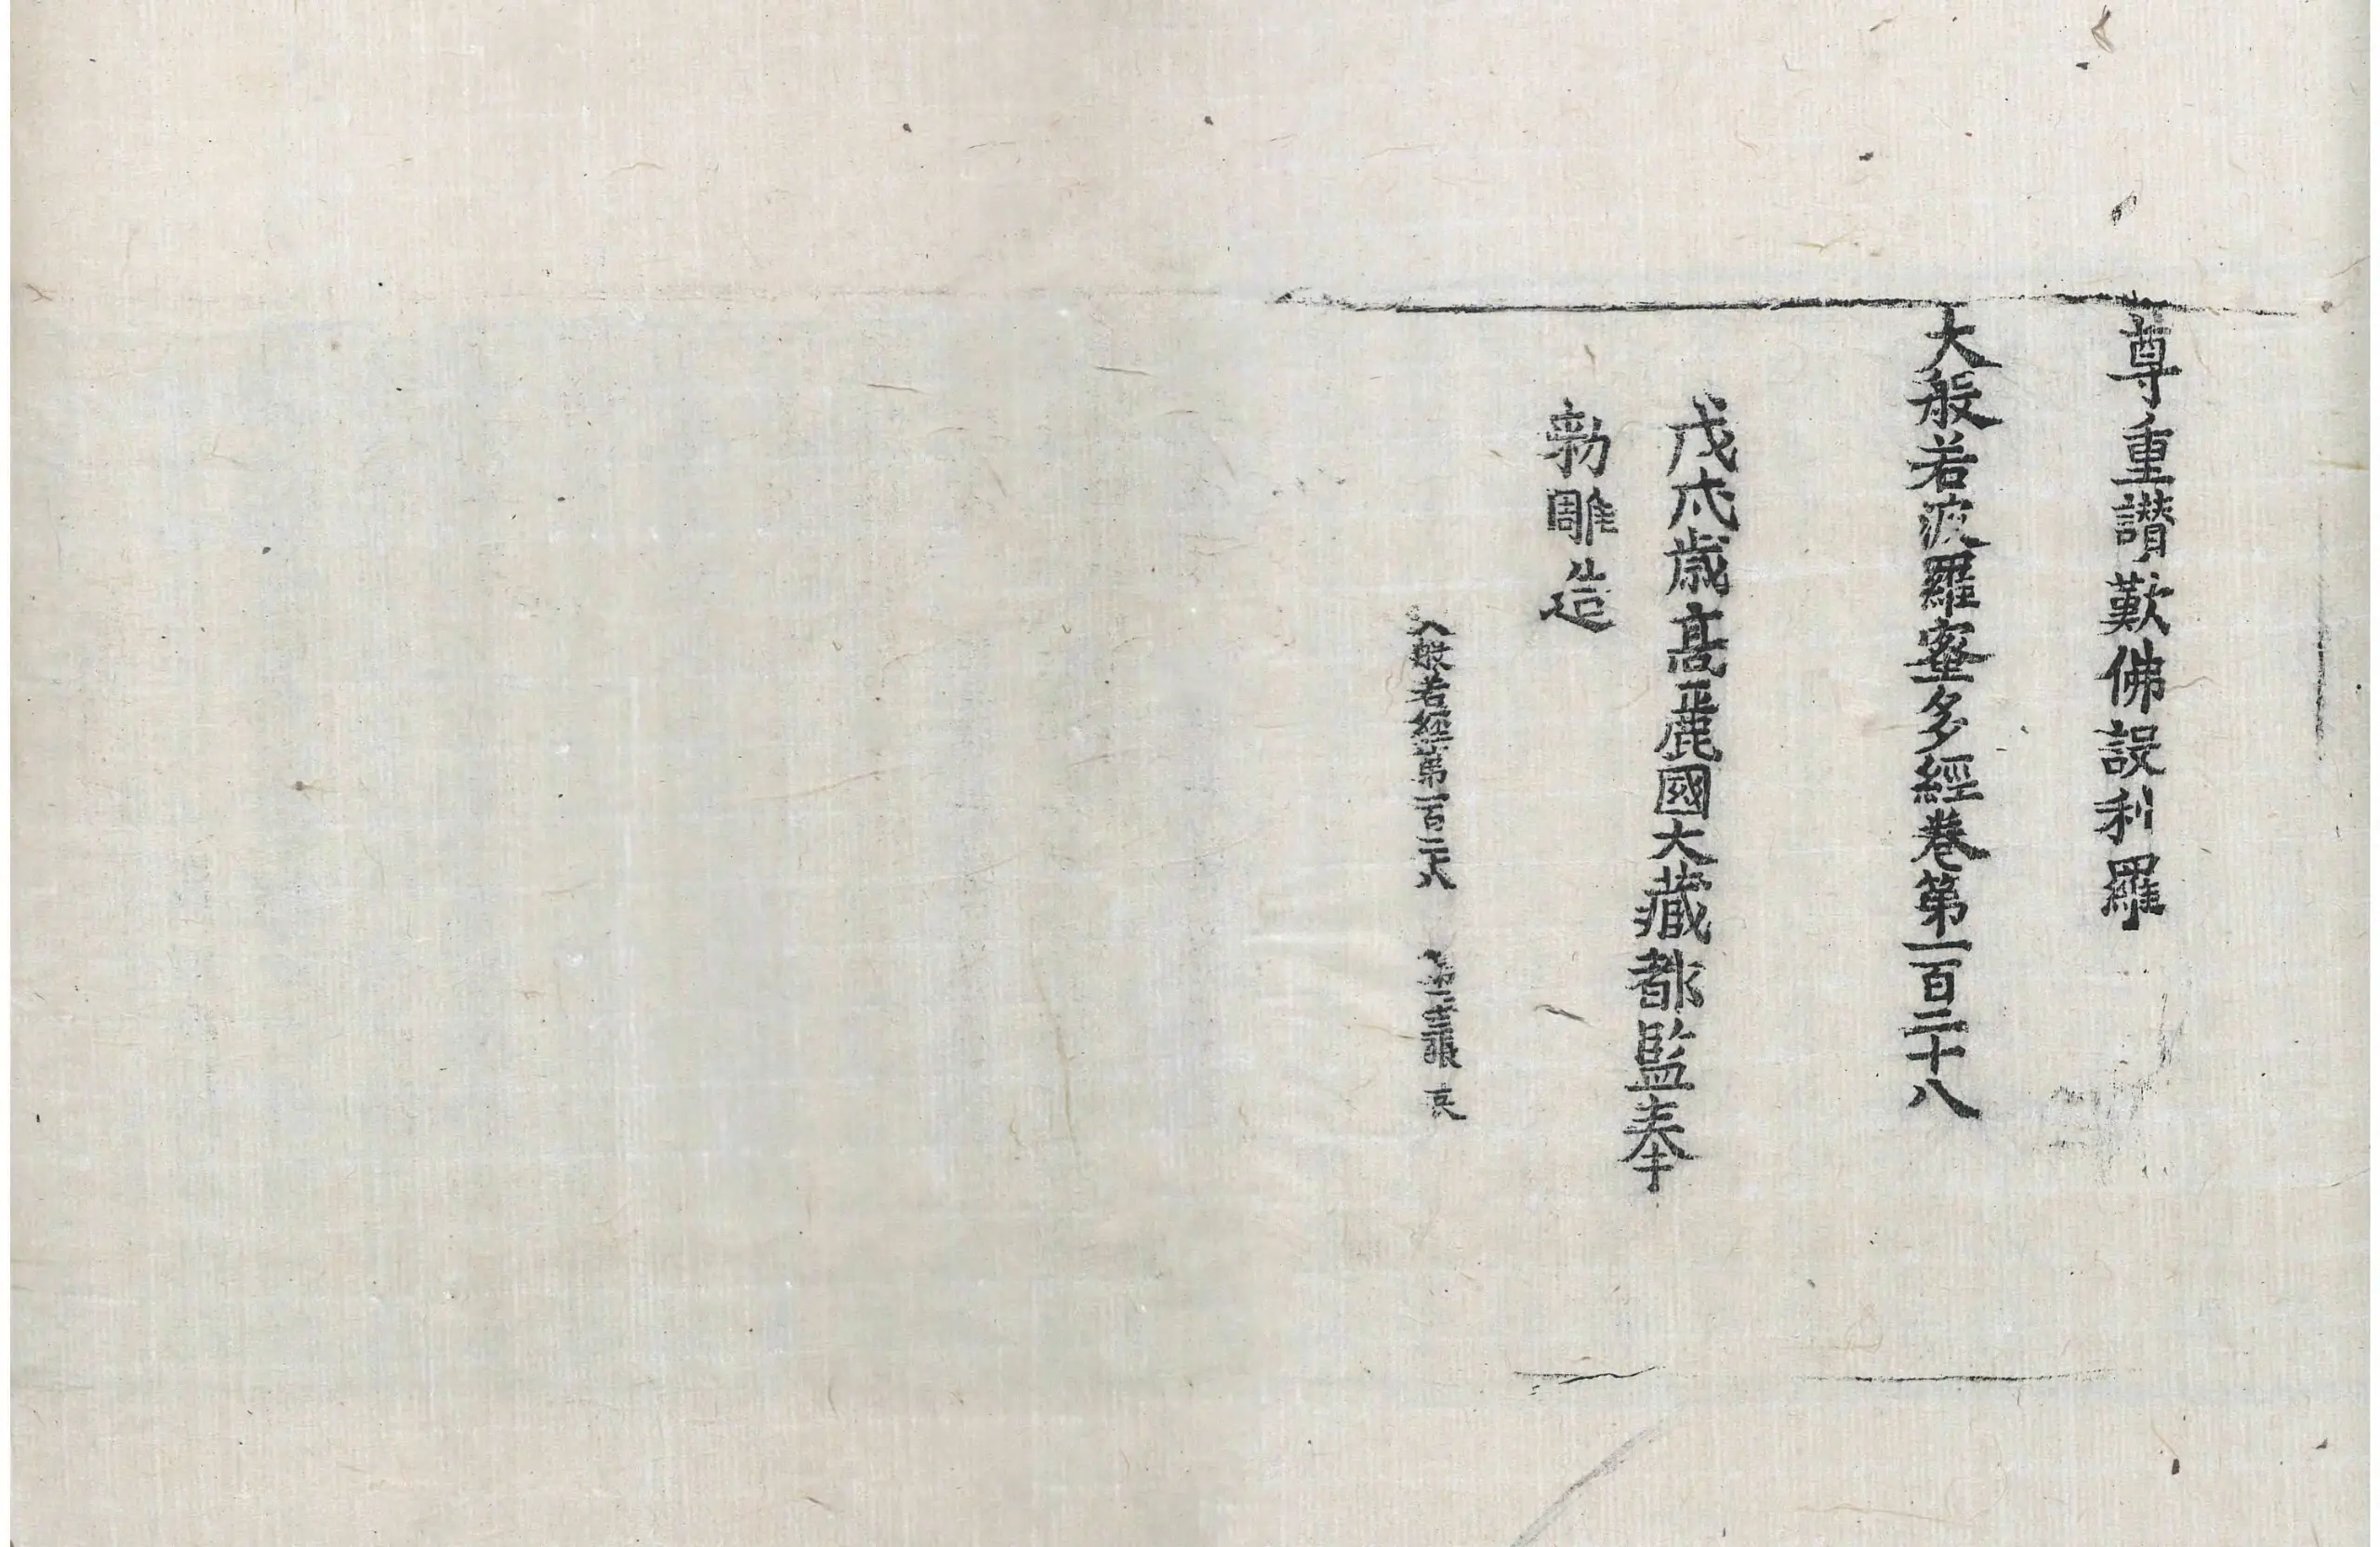 尊重讃歎佛設利羅
大般若波羅蜜多經卷第一百二十八
戊戌歲高麗國大藏都監奉
勅雕造
大般若經第一百二十八 張